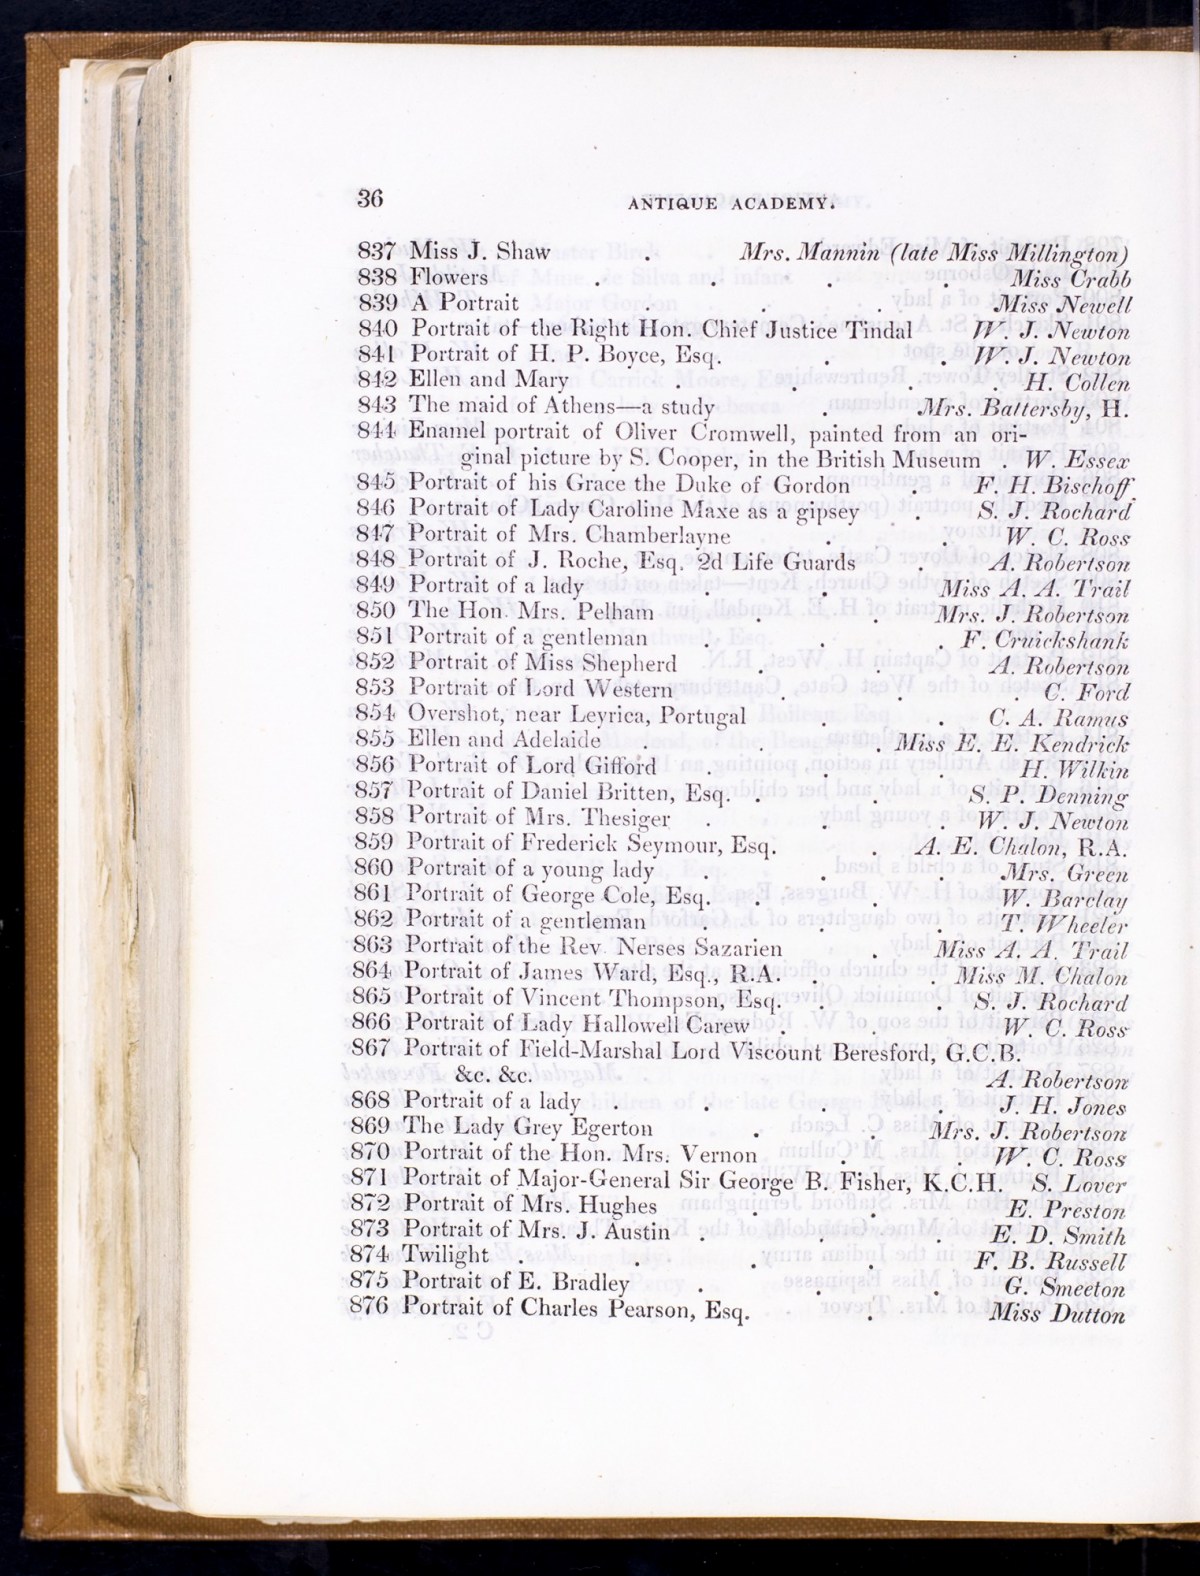 36
ANTIQUE ACADEMY.
837 Miss J. Shaw . Mrs. Mannin (late Miss Millington)
838 Flowers . . . . Miss Crabb
839 A Portrait . . . Miss Newell
840 Portrait of the Right Hon. Chief Justice Tindal W. J. Newton
841 Portrait of H. P. Boyce, Esq. . . W. J. Newton
842 Ellen and Mary . . . . H. Collen
843 The maid of Athens—a study . .Mrs. Battersby, H.
844 Enamel portrait of Oliver Cromwell, painted from an ori-
ginal picture by S. Cooper, in the British Museum . W. Essex
845 Portrait of his Grace the Duke of Gordon . F. H. Bischoff
846 Portrait of Lady Caroline Maxe as a gipsey . S. J. Rochard
847 Portrait of Mrs. Chamberlayne . . . W. C. Ross
848 Portrait of J. Roche, Esq. 2d Life Guards . A. Robertson
849 Portrait of a lady . . Miss A. A. Trail
850 The Hon. Mrs. Pelham . . Mrs. J. Robertson
851 Portrait of a gentleman . . . F. Cruickshank
852 Portrait of Miss Shepherd . . A. Robertson
853 Portrait of Lord Western . . . C. Ford
854 Overshot, near Leyrica, Portugal . . C. A. Ramus
855 Ellen and Adelaide . . Miss E. E. Kendrick
856 Portrait of Lord Gifford . . H. Wilkin
857 Portrait of Daniel Britten, Esq. . . S. P. Denning
858 Portrait of Mrs. Thesiger . . . W. J. Newton
859 Portrait of Frederick Seymour, Esq. . A. E. Chalon, R.A.
860 Portrait of a young lady . . . .Mrs. Green
861 Portrait of George Cole, Esq. . . W. Barclay
862 Portrait of a gentleman . . . T. Wheeler
863 Portrait of the Rev. Nerses Sazarien . Miss A. A. Trail
864 Portrait of James Ward, Esq., R.A. . . Miss M. Chalon
865 Portrait of Vincent Thompson, Esq. . . S. J. Rochard
866 Portrait of Lady Hallowell Carew . . . W. C. Ross
867 Portrait of Field-Marshal Lord Viscount Beresford, G.C.B.
&c. &c. A. Robertson
868 Portrait of a lady . . . . J. H. Jones
869 The Lady Grey Egerton . . Mrs. J. Robertson
870 Portrait of the Hon. Mrs. Vernon . . W. C. Ross
871 Portrait of Major-General Sir George B. Fisher, K.C.H. S. Lover
872 Portrait of Mrs. Hughes . . E. Preston
873 Portrait of Mrs. J. Austin . . E. D. Smith
874 Twilight . . . . F. B. Russell
875 Portrait of E. Bradley . . . G. Smeeton
876 Portrait of Charles Pearson, Esq. . Miss Dutton